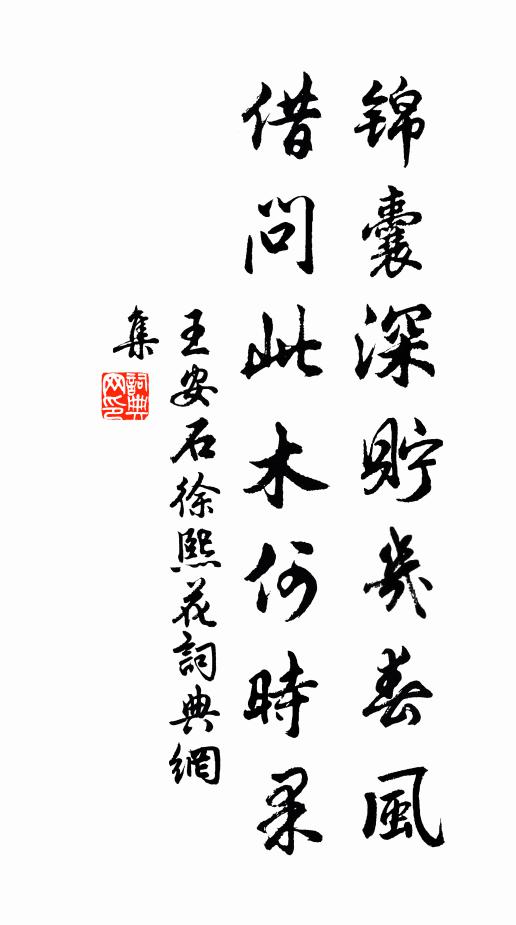 錦囊深貯幾春風
借問此木何時果
王安石徐熙花詞典網
集
詞典
网印